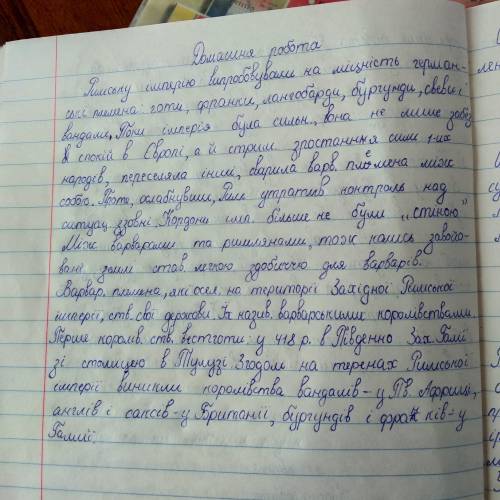 Домашня робота
Римську імперію випробовували на міцність герман-
ські племена: готи, франки, лангобарди, бургунди, свеви і
вандали. Поки імперія була сильн., вона не лише забез.
спокій в Європі, а й стрим. зростання сили 1-их
народів, переселяла інші, сварила варв. племена між
собою. Проте, ослабнувши, Рим утратив контроль над
ситуац. ззовні. Кордони імп. більше не були „стіною"
між варварами та римлянами, тож колись завойо-
вані землі став. легкою здобиччю для варварів.
Варвар. племена, які осел. на території Західної Римської
імперії, ств. свої держави. Їх назив. варварськими королівствами.
Перше королів. ств. вестготи: у 418 р. в Південно Зах. Галлії
зі столицею в Тулузі. Згодом на теренах Римської
імперії виникли королівства вандалів - у Пв. Африці,
англів і саксів - у Британії, бургундів і франків - у
Галлії.